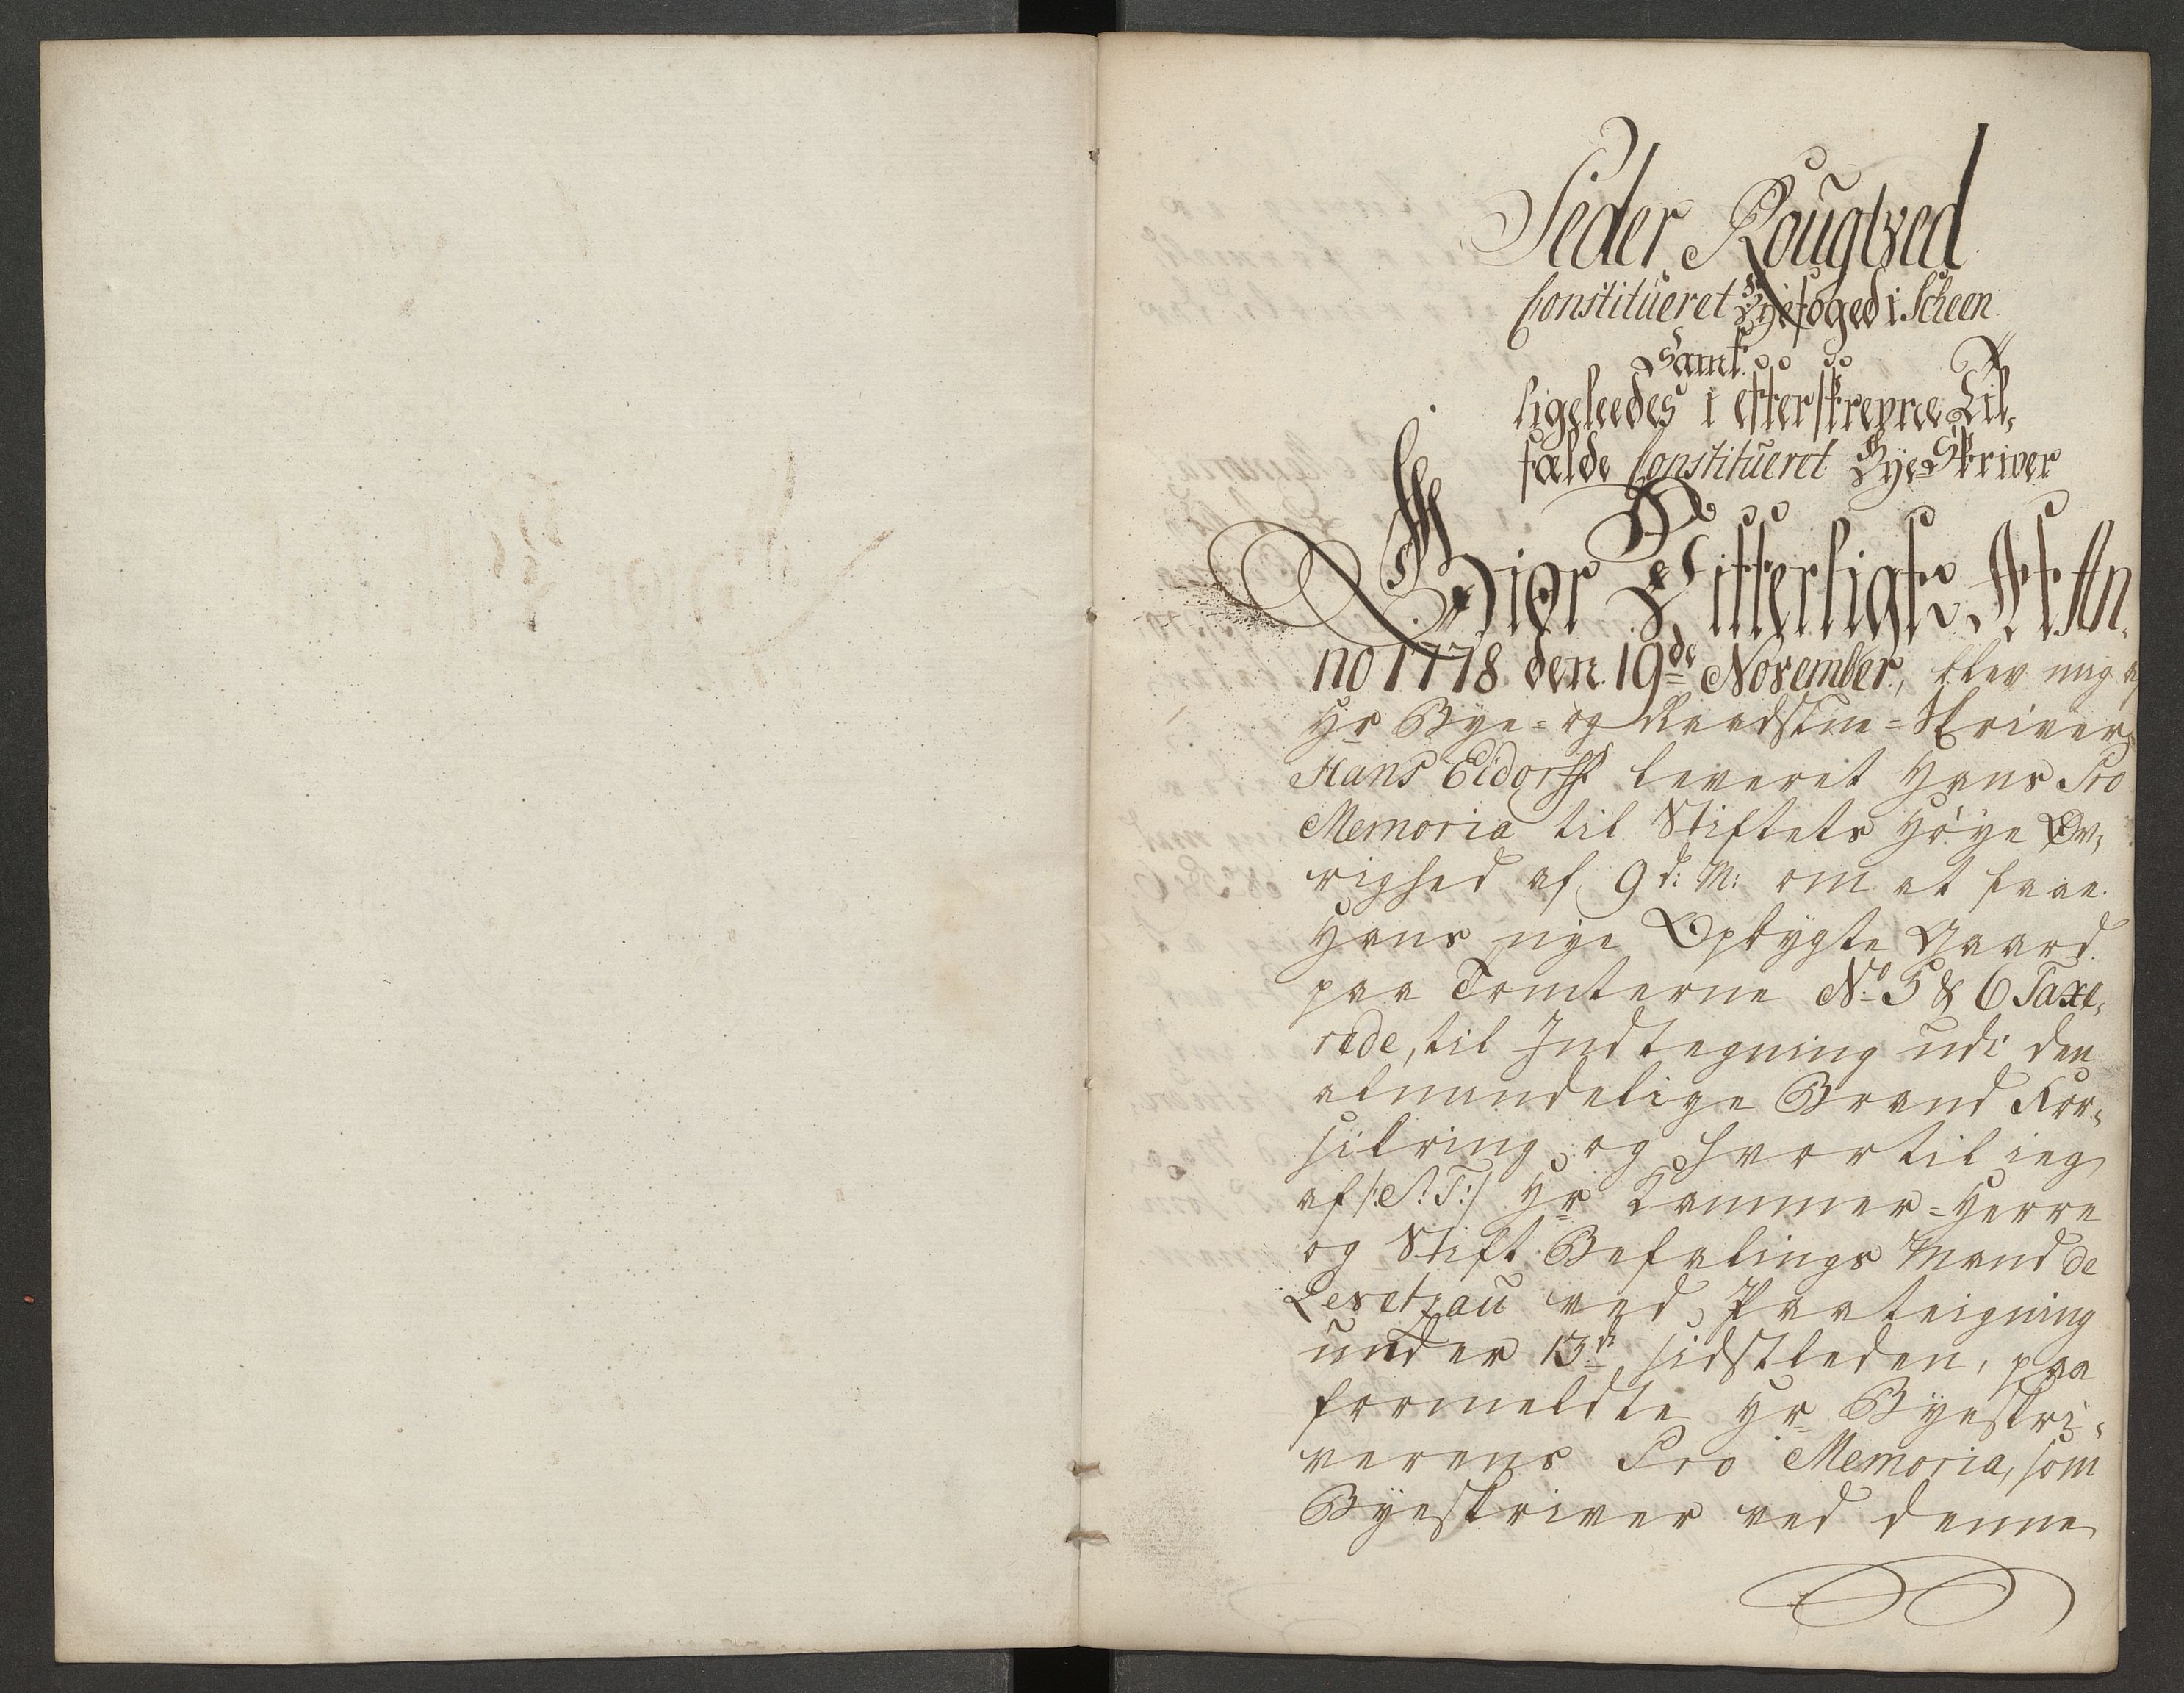 Peder Rougtved
Constitueret Byefoged i Scheen
Samt
ligeleedes i efterskrevne Til,
fælde Constitueret Bye-Skriver
Giør Vitterligt, At An,
no 1778 den 19de November, blev mig af
Hr Bye- og Raadstue-Skriver
Hans Eidorff leveret Hans Pro
Memoria til Stiftets Høye Øv,
righed af 9 d: M: om at faae
Hans nye Opbygte Gaard
paa Tomterne No 5 & 6 Taxe,
rede, til Indtegning udi den
almindelige Brand For,
sikring og hvortil ieg
af /:S: T:/ Hr Kammer-Herre
og Stift Befalings Mand de
Levetzau ved Paateigning
under 13de sidstleden, paa
formeldte Hr Byeskri,
verens Pro Memoria, som
Byeskriver ved denne